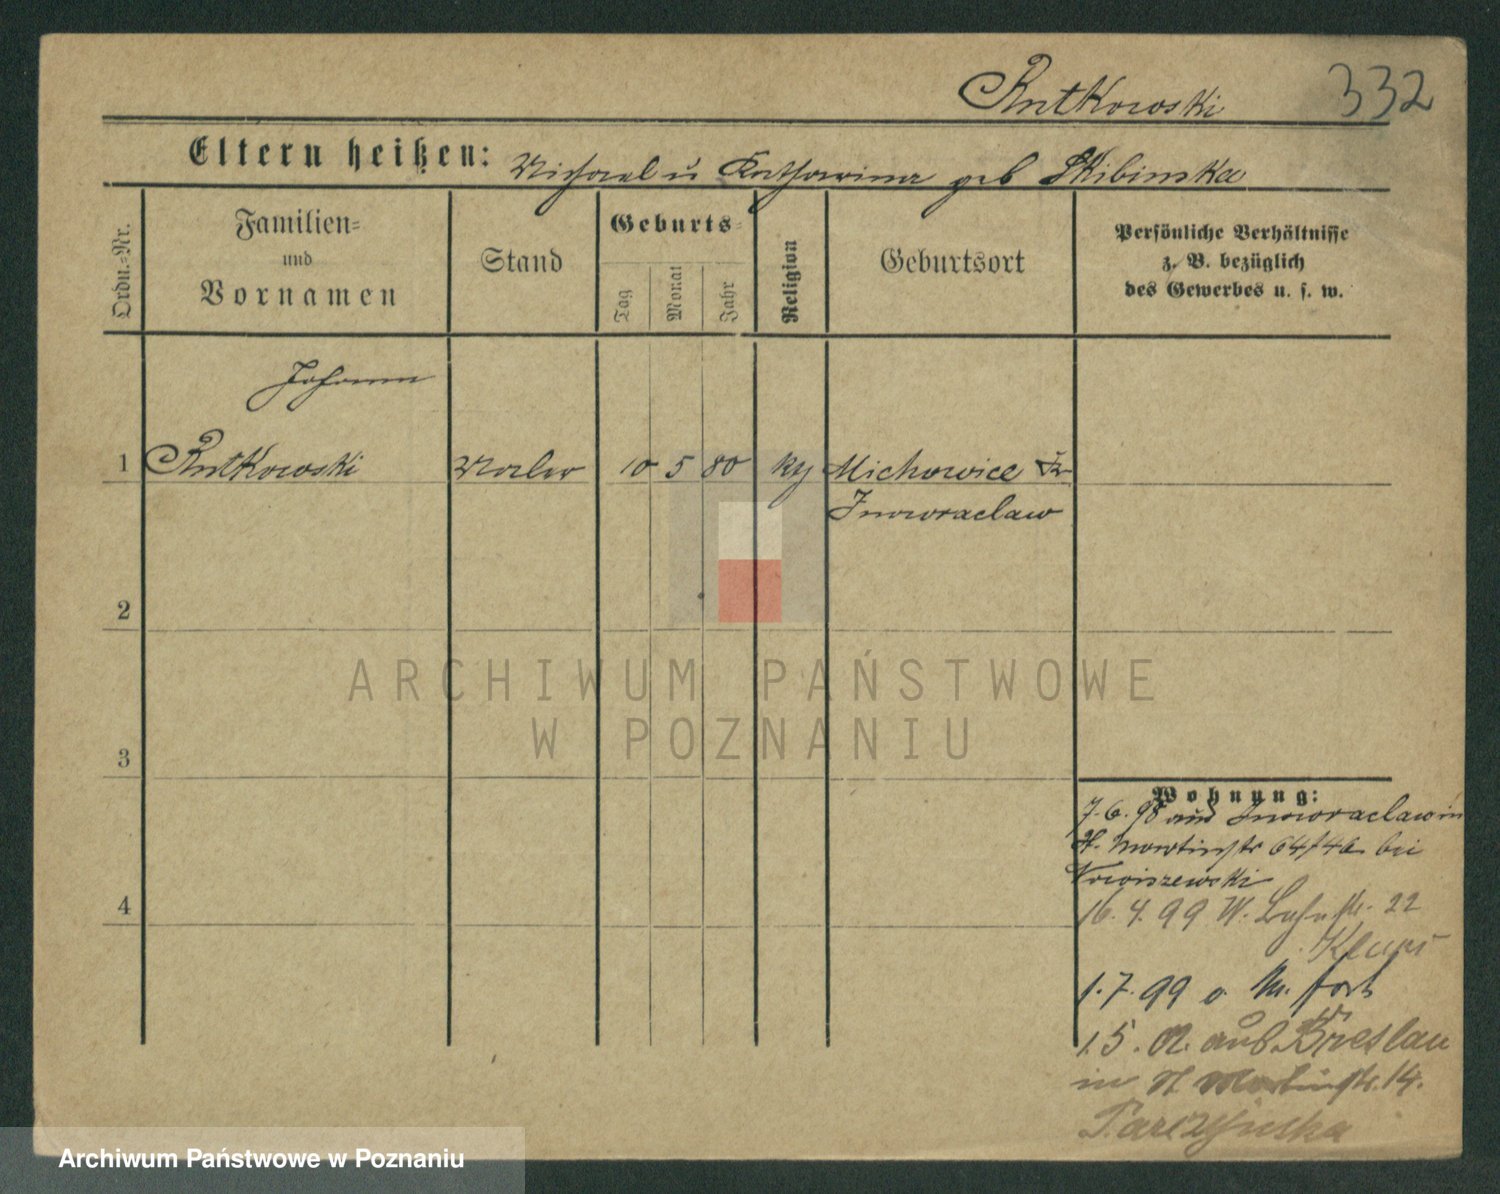 Rutkowski 332
Eltern heißen: Michael u Katharina geb Skibinska
Ordn.=Nr.
Familien=
und
Vornamen
Stand
Geburts=
Tag
Monat
Jahr
Religion
Geburtsort
Persönliche Verhältnisse
z. B. bezüglich
des Gewerbes u. s. w.
Johann
1 Rutkowski Maler 10 5 80 Michowice Kr
Inowraclaw
2
3
4
Wohnung:
7.6.98 aus Inowraclaw in
H. Martinstr 64/46 bei
16.4.99 W. 22
1.7.99 o. M. fort
1.5.02. aus Breslau
in St Martinstr. 14.
ARCHIWUM PAŃSTWOWE
W POZNANIU
Archiwum Państwowe w Poznaniu